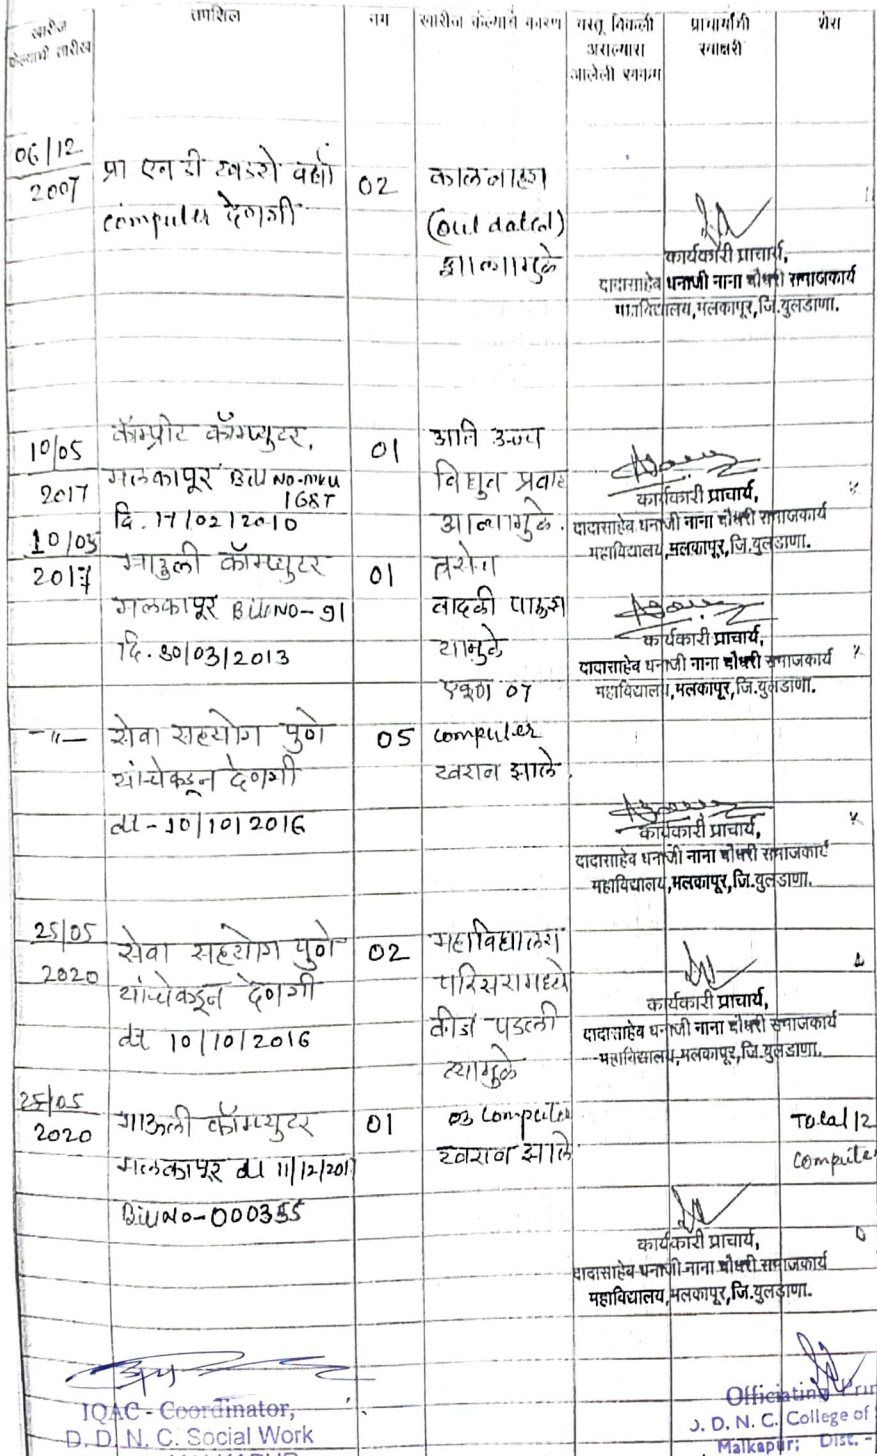 खारीज केल्याची तारीख
तपशिल
नग
खारीज केल्याचे कारण
वस्तू विकली असल्यास आलेली रक्कम
प्राचार्यांची स्वाक्षरी
शेरा
06/12
2007
प्रा एन डी खडसे वर्धा
computer देणगी
02
कालबाह्य
(out dated)
झाल्यामुळे
कार्यकारी प्राचार्य,
दादासाहेब धनाजी नाना चौधरी समाजकार्य
महाविद्यालय,मलकापूर,जि.बुलडाणा.
10/05
2017
कॉम्प्युटर,
मलकापूर Bill No-mku
1687
दि. 17/02/2010
01
अति उच्च
विद्युत प्रवाह
आल्यामुळे.
कार्यकारी प्राचार्य,
दादासाहेब धनाजी नाना चौधरी समाजकार्य
महाविद्यालय,मलकापूर,जि.बुलडाणा.
10/05
2017
माउली कॉम्प्युटर
मलकापूर Bill No-91
दि. 30/03/2013
01
तसेच
वादळी पाऊस
यामुळे
एकूण 07
कार्यकारी प्राचार्य,
दादासाहेब धनाजी नाना चौधरी समाजकार्य
महाविद्यालय,मलकापूर,जि.बुलडाणा.
-"-
सेवा सहयोग पुणे
यांचेकडून देणगी
दि - 10/10/2016
05
computer
खराब झाले.
कार्यकारी प्राचार्य,
दादासाहेब धनाजी नाना चौधरी समाजकार्य
महाविद्यालय,मलकापूर,जि.बुलडाणा.
25/05
2020
सेवा सहयोग पुणे
यांचेकडून देणगी
दि 10/10/2016
02
महाविद्यालय
परिसरामध्ये
वीज पडली
त्यामुळे
कार्यकारी प्राचार्य,
दादासाहेब धनाजी नाना चौधरी समाजकार्य
महाविद्यालय,मलकापूर,जि.बुलडाणा.
25/05
2020
माऊली कॉम्प्युटर
मलकापूर दि 11/12/201
Bill No-000355
01
03 Computer
खराब झाले
Total 12
Compute
कार्यकारी प्राचार्य,
दादासाहेब धनाजी नाना चौधरी समाजकार्य
महाविद्यालय,मलकापूर,जि.बुलडाणा.
IQAC - Coordinator,
D. D. N. C. Social Work
Officiating Prin
D. D. N. C. College of S
Malkapur: Dist. -